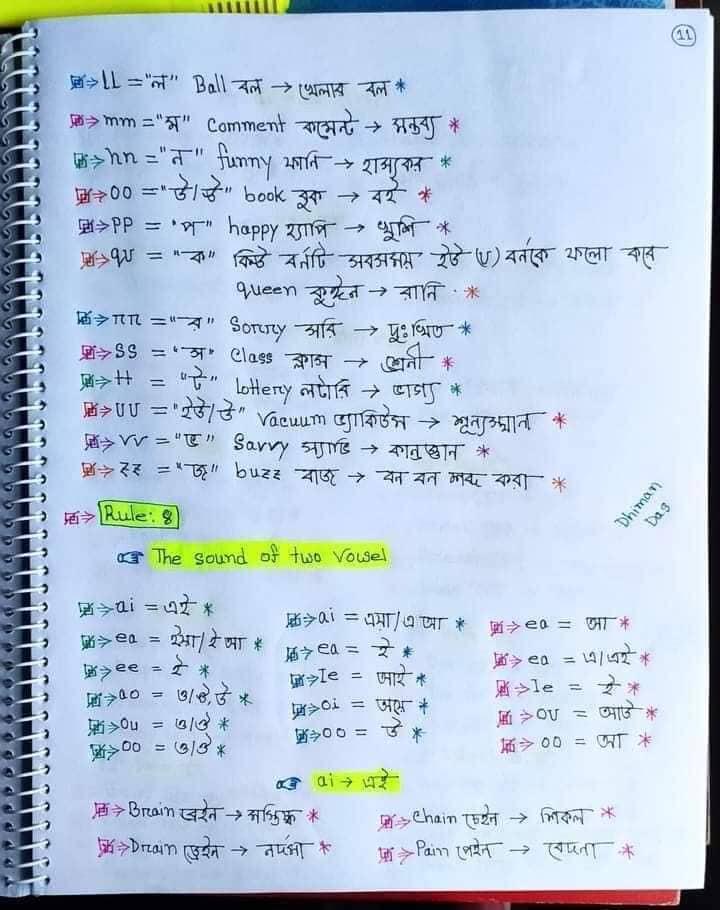 11
LL = "ল" Ball বল → খেলার বল *
mm = "ম" Comment কমেন্ট → মন্তব্য *
nn = "ন" funny ফানি → হাস্যকর *
oo = "উ/ঊ" book বুক → বই *
PP = "প" happy হ্যাপি → খুশি *
qu = "ক" কিউ বর্নটি সবসময় ইউ (U) বর্নকে ফলো করে
queen কুইন → রানি *
rr = "র" Sorry সরি → দুঃখিত *
SS = "স" Class ক্লাস → শ্রেনী *
tt = "ট" Lottery লটারি → ভাগ্য *
UU = "ইউ/উ" Vacuum ভ্যাকিউম → শূন্যস্থান *
VV = "ভ" Savvy স্যাভি → কান্ডজ্ঞান *
ZZ = "জ" buzz বাজ → বন বন শব্দ করা *
Dhiman Das
Rule: 8
The sound of two Vowel
ai = এই * ai = এয়া/এ্যা * ea = আ *
ea = ইয়া/ইআ * ea = ই * ea = এ/এই *
ee = ই * Ie = আই * Ie = ই *
ao = ও/ঔ,উ * oi = অয় * ou = আউ *
Ou = ও/ঔ * oo = উ * oo = আ *
oo = ও/ঔ *
ai → এই
Brain ব্রেইন → মস্তিষ্ক * Chain চেইন → শিকল *
Drain ড্রেইন → নর্দমা * Pain পেইন → বেদনা *